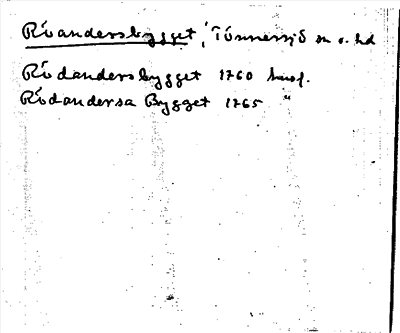 Rívandersbygget, Tönnersjö sn o. hd
Rídandersbygget 1760 husf.
Rídandersa Bygget 1765 "